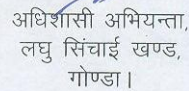 अधिशासी अभियन्ता,
लघु सिंचाई खण्ड,
गोण्डा।